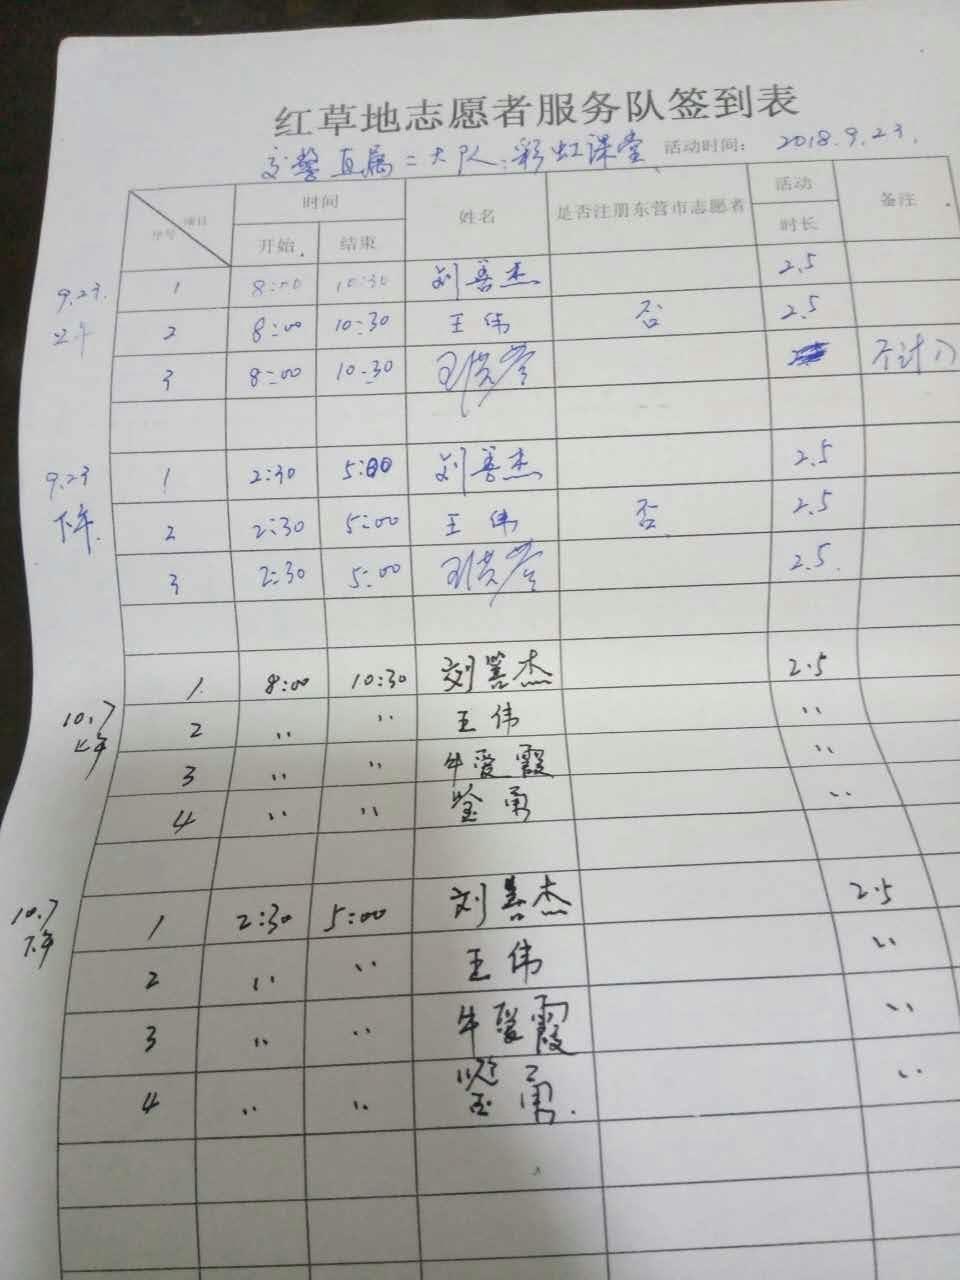 红草地志愿者服务队签到表
交警直属二大队:彩虹课堂 活动时间: 2018.9.23.
序号 项目 时间 姓名 是否注册东营市志愿者 活动 备注
开始 结束 时长
9.23. 上午
1 8:00 10:30 刘善杰 2.5
2 8:00 10:30 王伟 否 2.5
3 8:00 10:30 不计入
9.23 下午.
1 2:30 5:00 刘善杰 2.5
2 2:30 5:00 王伟 否 2.5
3 2:30 5:00 2.5.
10.7 上午
1. 8:00 10:30 刘善杰 2.5
2 〃 〃 王伟 〃
3 〃 〃 牛爱霞 〃
4 〃 〃 勇 〃
10.7 下午
1 2:30 5:00 刘善杰 2.5
2 〃 〃 王伟 〃
3 〃 〃 牛爱霞 〃
4 〃 〃 勇. 〃